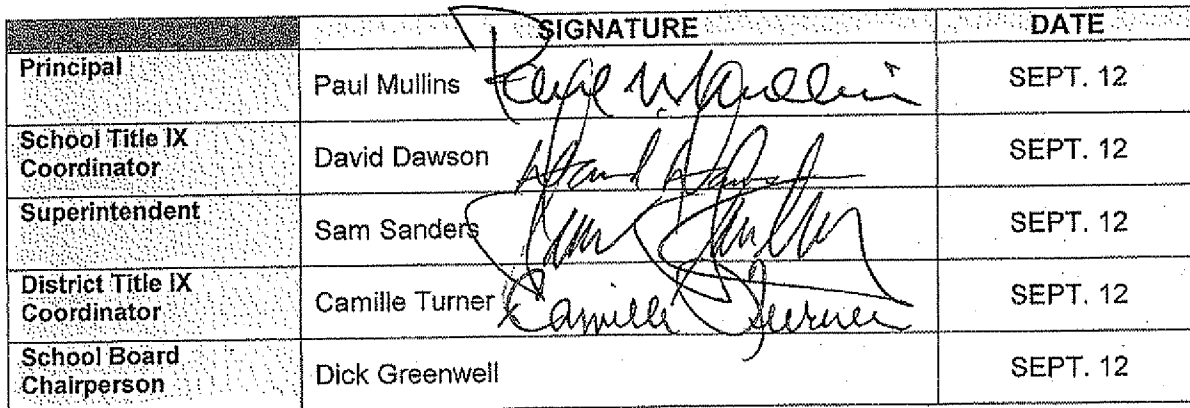 SIGNATURE DATE
Principal Paul Mullins SEPT. 12
School Title IX
Coordinator David Dawson SEPT. 12
Superintendent Sam Sanders SEPT. 12
District Title IX
Coordinator Camille Turner Camille Turner SEPT. 12
School Board
Chairperson Dick Greenwell SEPT. 12